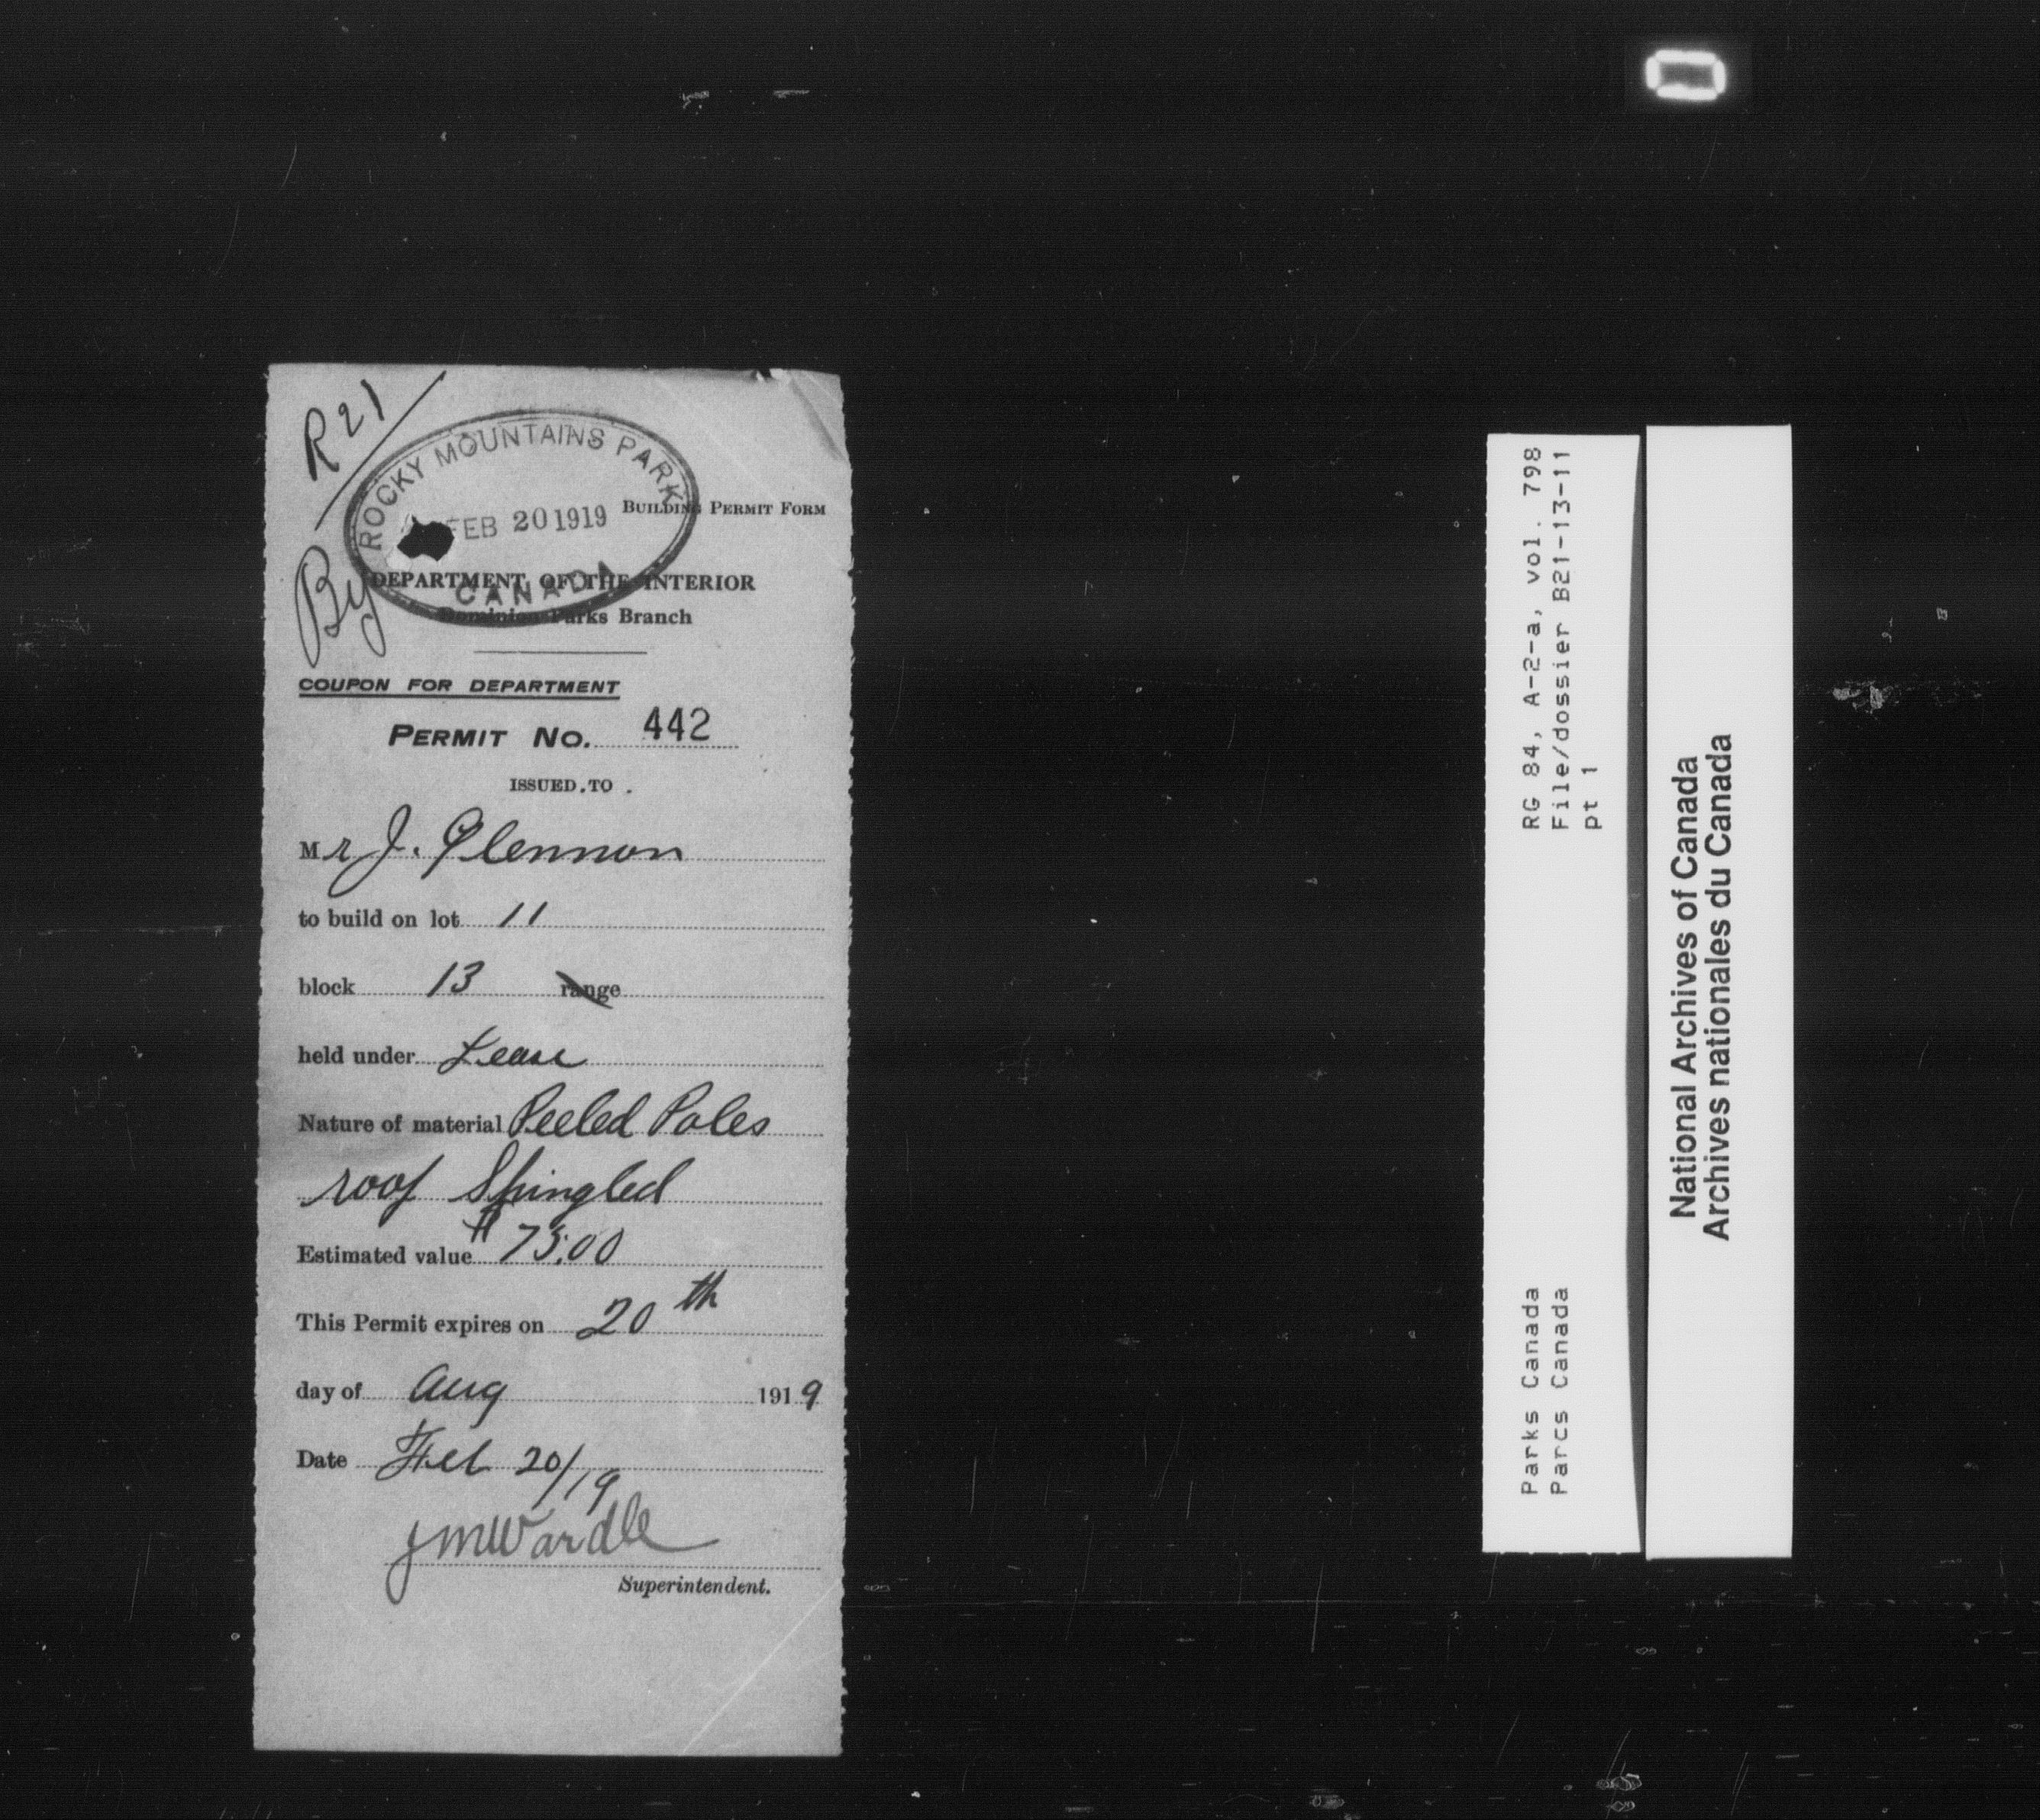 R 21
ROCKY MOUNTAINS PARK
FEB 20 1919
CANADA
BUILDING PERMIT FORM
By
DEPARTMENT OF THE INTERIOR
Dominion Parks Branch
COUPON FOR DEPARTMENT
PERMIT NO. 442
ISSUED TO
Mr J. Glennon
to build on lot 11
block 13 range
held under Lease
Nature of material Peeled Poles
roof Shingled
Estimated value $75.00
This Permit expires on 20th
day of Aug 1919
Date Feb 20/19
JMWardle
Superintendent.
RG 84, A-2-a, vol. 798
File/dossier B21-13-11
pt 1
Parks Canada
Parcs Canada
National Archives of Canada
Archives nationales du Canada